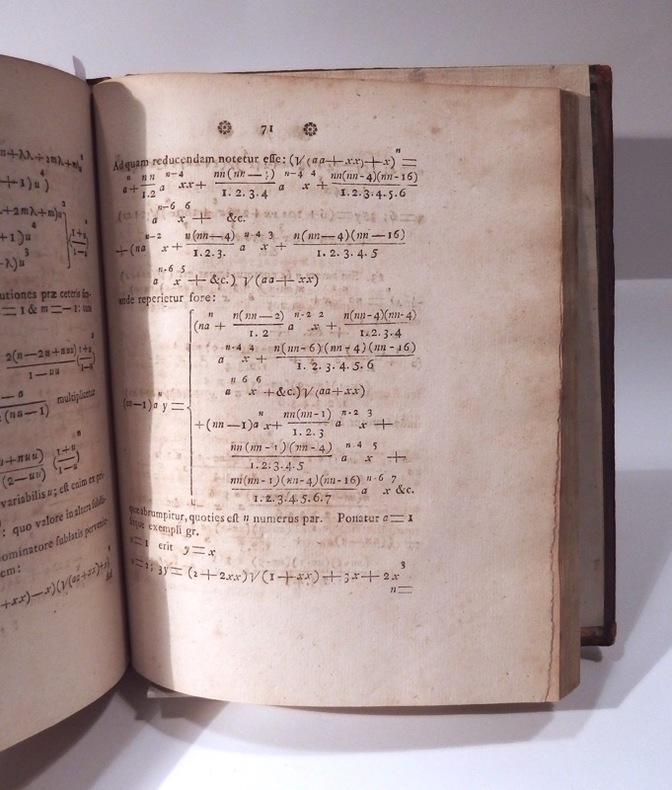 n+λλ+2mλ+m
+1)u
+2mλ+m)u
+1)u
-λ)u
utiones præ ceteris
=1 & m=-1: tum
2(n-2u+nuu)
1-uu
multiplicetur
(nu-1)
u+nuu
(2-uu)
variabilis u; est enim ex
: quo valore in altera
nominatore sublatis
em:
+xx)-x)(√(aa+xx)+x)
71
Ad quam reducendam notetur esse: (√(aa+xx)+x)^n=
a^n+nn/1.2 a^{n-2} xx+ nn(nn-4)/1.2.3.4 a^{n-4} x^4 + nn(nn-4)(nn-16)/1.2.3.4.5.6
a^{n-6} x^6 + &c.
+(na^{n-2} x+ n(nn-4)/1.2.3. a^{n-4} x^3 + n(nn-4)(nn-16)/1.2.3.4.5
a^{n-6} x^5 + &c.) √(aa+xx)
unde reperietur fore:
(na^n + n(nn-2)/1.2 a^{n-2} x^2 + n(nn-4)(nn-4)/1.2.3.4
a^{n-4} x^4 + n(nn-6)(nn-4)(nn-16)/1.2.3.4.5.6
(nn-1)a^n y= a^{n-6} x^6 +&c.)√(aa+xx)
+(nn-1)a^n x+ nn(nn-1)/1.2.3 a^{n-2} x^3 +
nn(nn-1)(nn-4)/1.2.3.4.5 a^{n-4} x^5 +
nn(nn-1)(nn-4)(nn-16)/1.2.3.4.5.6.7 a^{n-6} x^7 &c.
quæ abrumpitur, quoties est n numerus par. Ponatur a=1
exempli gr.
=1 erit y=x
=2; 3y=(2+2xx)√(1+xx)+3x+2x^3
n=